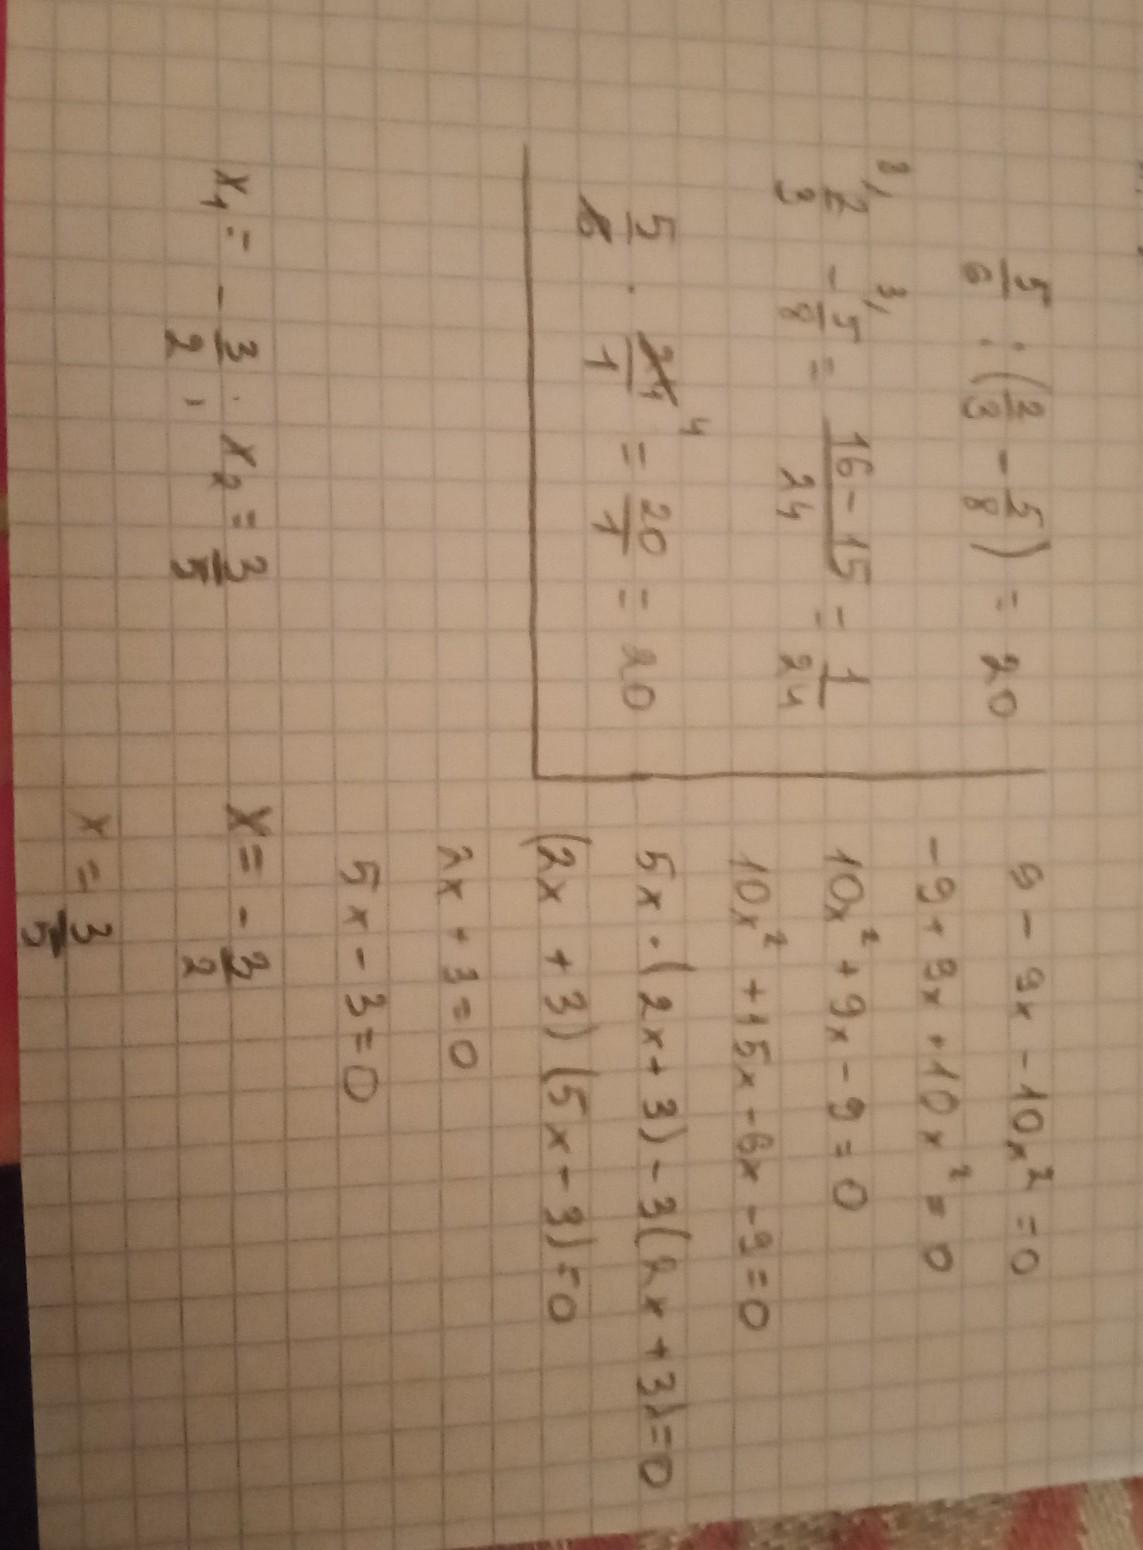 5/6 : (2/3 - 5/8) = 20
8, 2/3 - 3, 5/8 = 16 - 15/24 = 1/24
5/6 · 24/1 4 = 20/1 = 20
9 - 9x - 10x² = 0
-9 + 9x + 10x² = 0
10x² + 9x - 9 = 0
10x² + 15x - 6x - 9 = 0
5x · (2x + 3) - 3(2x + 3) = 0
(2x + 3) (5x - 3) = 0
2x + 3 = 0
5x - 3 = 0
x₁ = -3/2; x₂ = 3/5
x = -3/2
x = 3/5